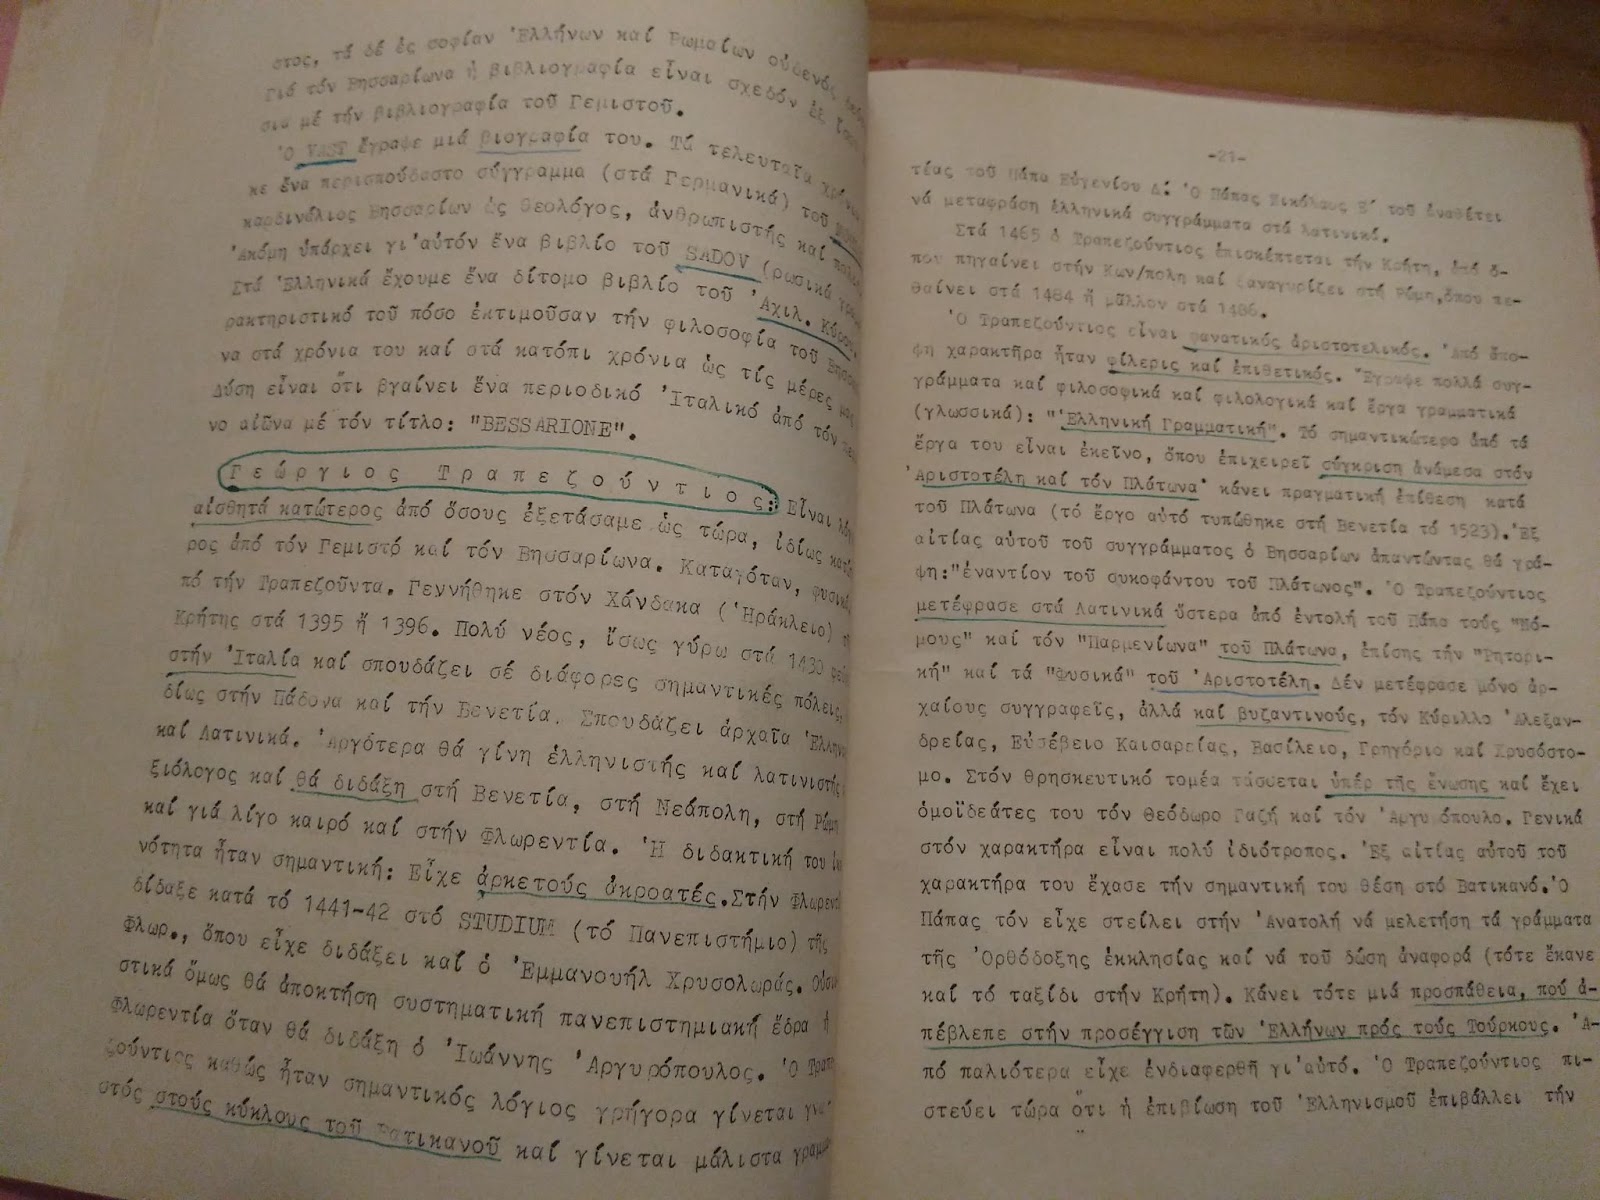 στος, τά δέ ἐς σοφίαν Ἑλλήνων καί Ρωμαίων οὐδενός
Γιά τόν Βησσαρίωνα ἡ βιβλιογραφία εἶναι σχεδόν ἐξ
σια μέ τήν βιβλιογραφία τοῦ Γεμιστοῦ.
Ὁ VAST ἔγραψε μιά βιογραφία του. Τά τελευταῖα χρόνια
κε ἕνα περισπούδαστο σύγγραμμα (στά Γερμανικά) τοῦ
καρδινάλιος Βησσαρίων ὡς θεολόγος, ἀνθρωπιστής καί
Ἀκόμη ὑπάρχει γι'αὐτόν ἕνα βιβλίο τοῦ SADOV (ρωσικά
Στά Ἑλληνικά ἔχουμε ἕνα δίτομο βιβλίο τοῦ Ἀχιλ. Κύρου.
ρακτηριστικό τοῦ πόσο ἐκτιμοῦσαν τήν φιλοσοφία τοῦ
να στά χρόνια του καί στά κατόπι χρόνια ὡς τίς μέρες μας
Δύση εἶναι ὅτι βγαίνει ἕνα περιοδικό Ἰταλικό ἀπό τόν
νο αἰῶνα μέ τόν τίτλο: "BESSARIONE".
Γεώργιος Τραπεζούντιος: Εἶναι
αἰσθητά κατώτερος ἀπό ὅσους ἐξετάσαμε ὡς τώρα, ἰδίως
ρος ἀπό τόν Γεμιστό καί τόν Βησσαρίωνα. Καταγόταν, φυσικά,
πό τήν Τραπεζοῦντα. Γεννήθηκε στόν Χάνδακα (Ἡράκλειο)
Κρήτης στά 1395 ἤ 1396. Πολύ νέος, ἴσως γύρω στά 1430
στήν Ἰταλία καί σπουδάζει σέ διάφορες σημαντικές πόλεις,
δίως στήν Πάδουα καί τήν Βενετία. Σπουδάζει ἀρχαῖα
καί Λατινικά. Ἀργότερα θά γίνη ἑλληνιστής καί λατινιστής
ξιόλογος καί θά διδάξη στή Βενετία, στή Νεάπολη, στή Ρώμη
καί γιά λίγο καιρό καί στήν Φλωρεντία. Ἡ διδακτική του
νότητα ἦταν σημαντική: Εἶχε ἀρκετούς ἀκροατές. Στήν
δίδαξε κατά τό 1441-42 στό STUDIUM (τό Πανεπιστήμιο) τῆς
Φλωρ., ὅπου εἶχε διδάξει καί ὁ Ἐμμανουήλ Χρυσολωράς.
στικά ὅμως θά ἀποκτήση συστηματική πανεπιστημιακή ἕδρα ἡ
Φλωρεντία ὅταν θά διδάξη ὁ Ἰωάννης Ἀργυρόπουλος. Ὁ
ζούντιος καθώς ἦταν σημαντικός λόγιος γρήγορα γίνεται
στός στούς κύκλους τοῦ Βατικανοῦ καί γίνεται μάλιστα
-21-
τέας τοῦ Πάπα Εὐγενίου Δ. Ὁ Πάπας Νικόλαος Ε΄ τοῦ ἀναθέτει
νά μεταφράση ἑλληνικά συγγράμματα στά λατινικά.
Στά 1465 ὁ Τραπεζούντιος ἐπισκέπτεται τήν Κρήτη, ἀπό ὅ-
που πηγαίνει στήν Κων/πολη καί ξαναγυρίζει στή Ρώμη, ὅπου πε-
θαίνει στά 1484 ἤ μᾶλλον στά 1486.
Ὁ Τραπεζούντιος εἶναι φανατικός ἀριστοτελικός. Ἀπό ἄπο-
ψη χαρακτῆρα ἦταν φίλερις καί ἐπιθετικός. Ἔγραψε πολλά συγ-
γράμματα καί φιλοσοφικά καί φιλολογικά καί ἔργα γραμματικά
(γλωσσικά): "Ἑλληνική Γραμματική". Τό σημαντικώτερο ἀπό τά
ἔργα του εἶναι ἐκεῖνο, ὅπου ἐπιχειρεῖ σύγκριση ἀνάμεσα στόν
Ἀριστοτέλη καί τόν Πλάτωνα· κάνει πραγματική ἐπίθεση κατά
τοῦ Πλάτωνα (τό ἔργο αὐτό τυπώθηκε στή Βενετία τό 1523). Ἐξ
αἰτίας αὐτοῦ τοῦ συγγράμματος ὁ Βησσαρίων ἀπαντώντας θά γρά-
ψη:"ἐναντίον τοῦ συκοφάντου τοῦ Πλάτωνος". Ὁ Τραπεζούντιος
μετέφρασε στά Λατινικά ὕστερα ἀπό ἐντολή τοῦ Πάπα τούς "Νό-
μους" καί τόν "Παρμενίωνα" τοῦ Πλάτωνα, ἐπίσης τήν "Ρητορι-
κή" καί τά "Φυσικά" τοῦ Ἀριστοτέλη. Δέν μετέφρασε μόνο ἀρ-
χαίους συγγραφεῖς, ἀλλά καί βυζαντινούς, τόν Κύριλλο Ἀλεξαν-
δρείας, Εὐσέβειο Καισαρείας, Βασίλειο, Γρηγόριο καί Χρυσόστο-
μο. Στόν θρησκευτικό τομέα τάσσεται ὑπέρ τῆς ἕνωσης καί ἔχει
ὁμοϊδεάτες του τόν Θεόδωρο Γαζή καί τόν Ἀργυρόπουλο. Γενικά
στόν χαρακτήρα εἶναι πολύ ἰδιότροπος. Ἐξ αἰτίας αὐτοῦ τοῦ
χαρακτήρα του ἔχασε τήν σημαντική του θέση στό Βατικανό. Ὁ
Πάπας τόν εἶχε στείλει στήν Ἀνατολή νά μελετήση τά γράμματα
τῆς Ὀρθόδοξης ἐκκλησίας καί νά τοῦ δώση ἀναφορά (τότε ἔκανε
καί τό ταξίδι στήν Κρήτη). Κάνει τότε μιά προσπάθεια, πού ἀ-
πέβλεπε στήν προσέγγιση τῶν Ἑλλήνων πρός τούς Τούρκους. Ἀ-
πό παλιότερα εἶχε ἐνδιαφερθῆ γι'αὐτό. Ὁ Τραπεζούντιος πι-
στεύει τώρα ὅτι ἡ ἐπιβίωση τοῦ Ἑλληνισμοῦ ἐπιβάλλει τήν